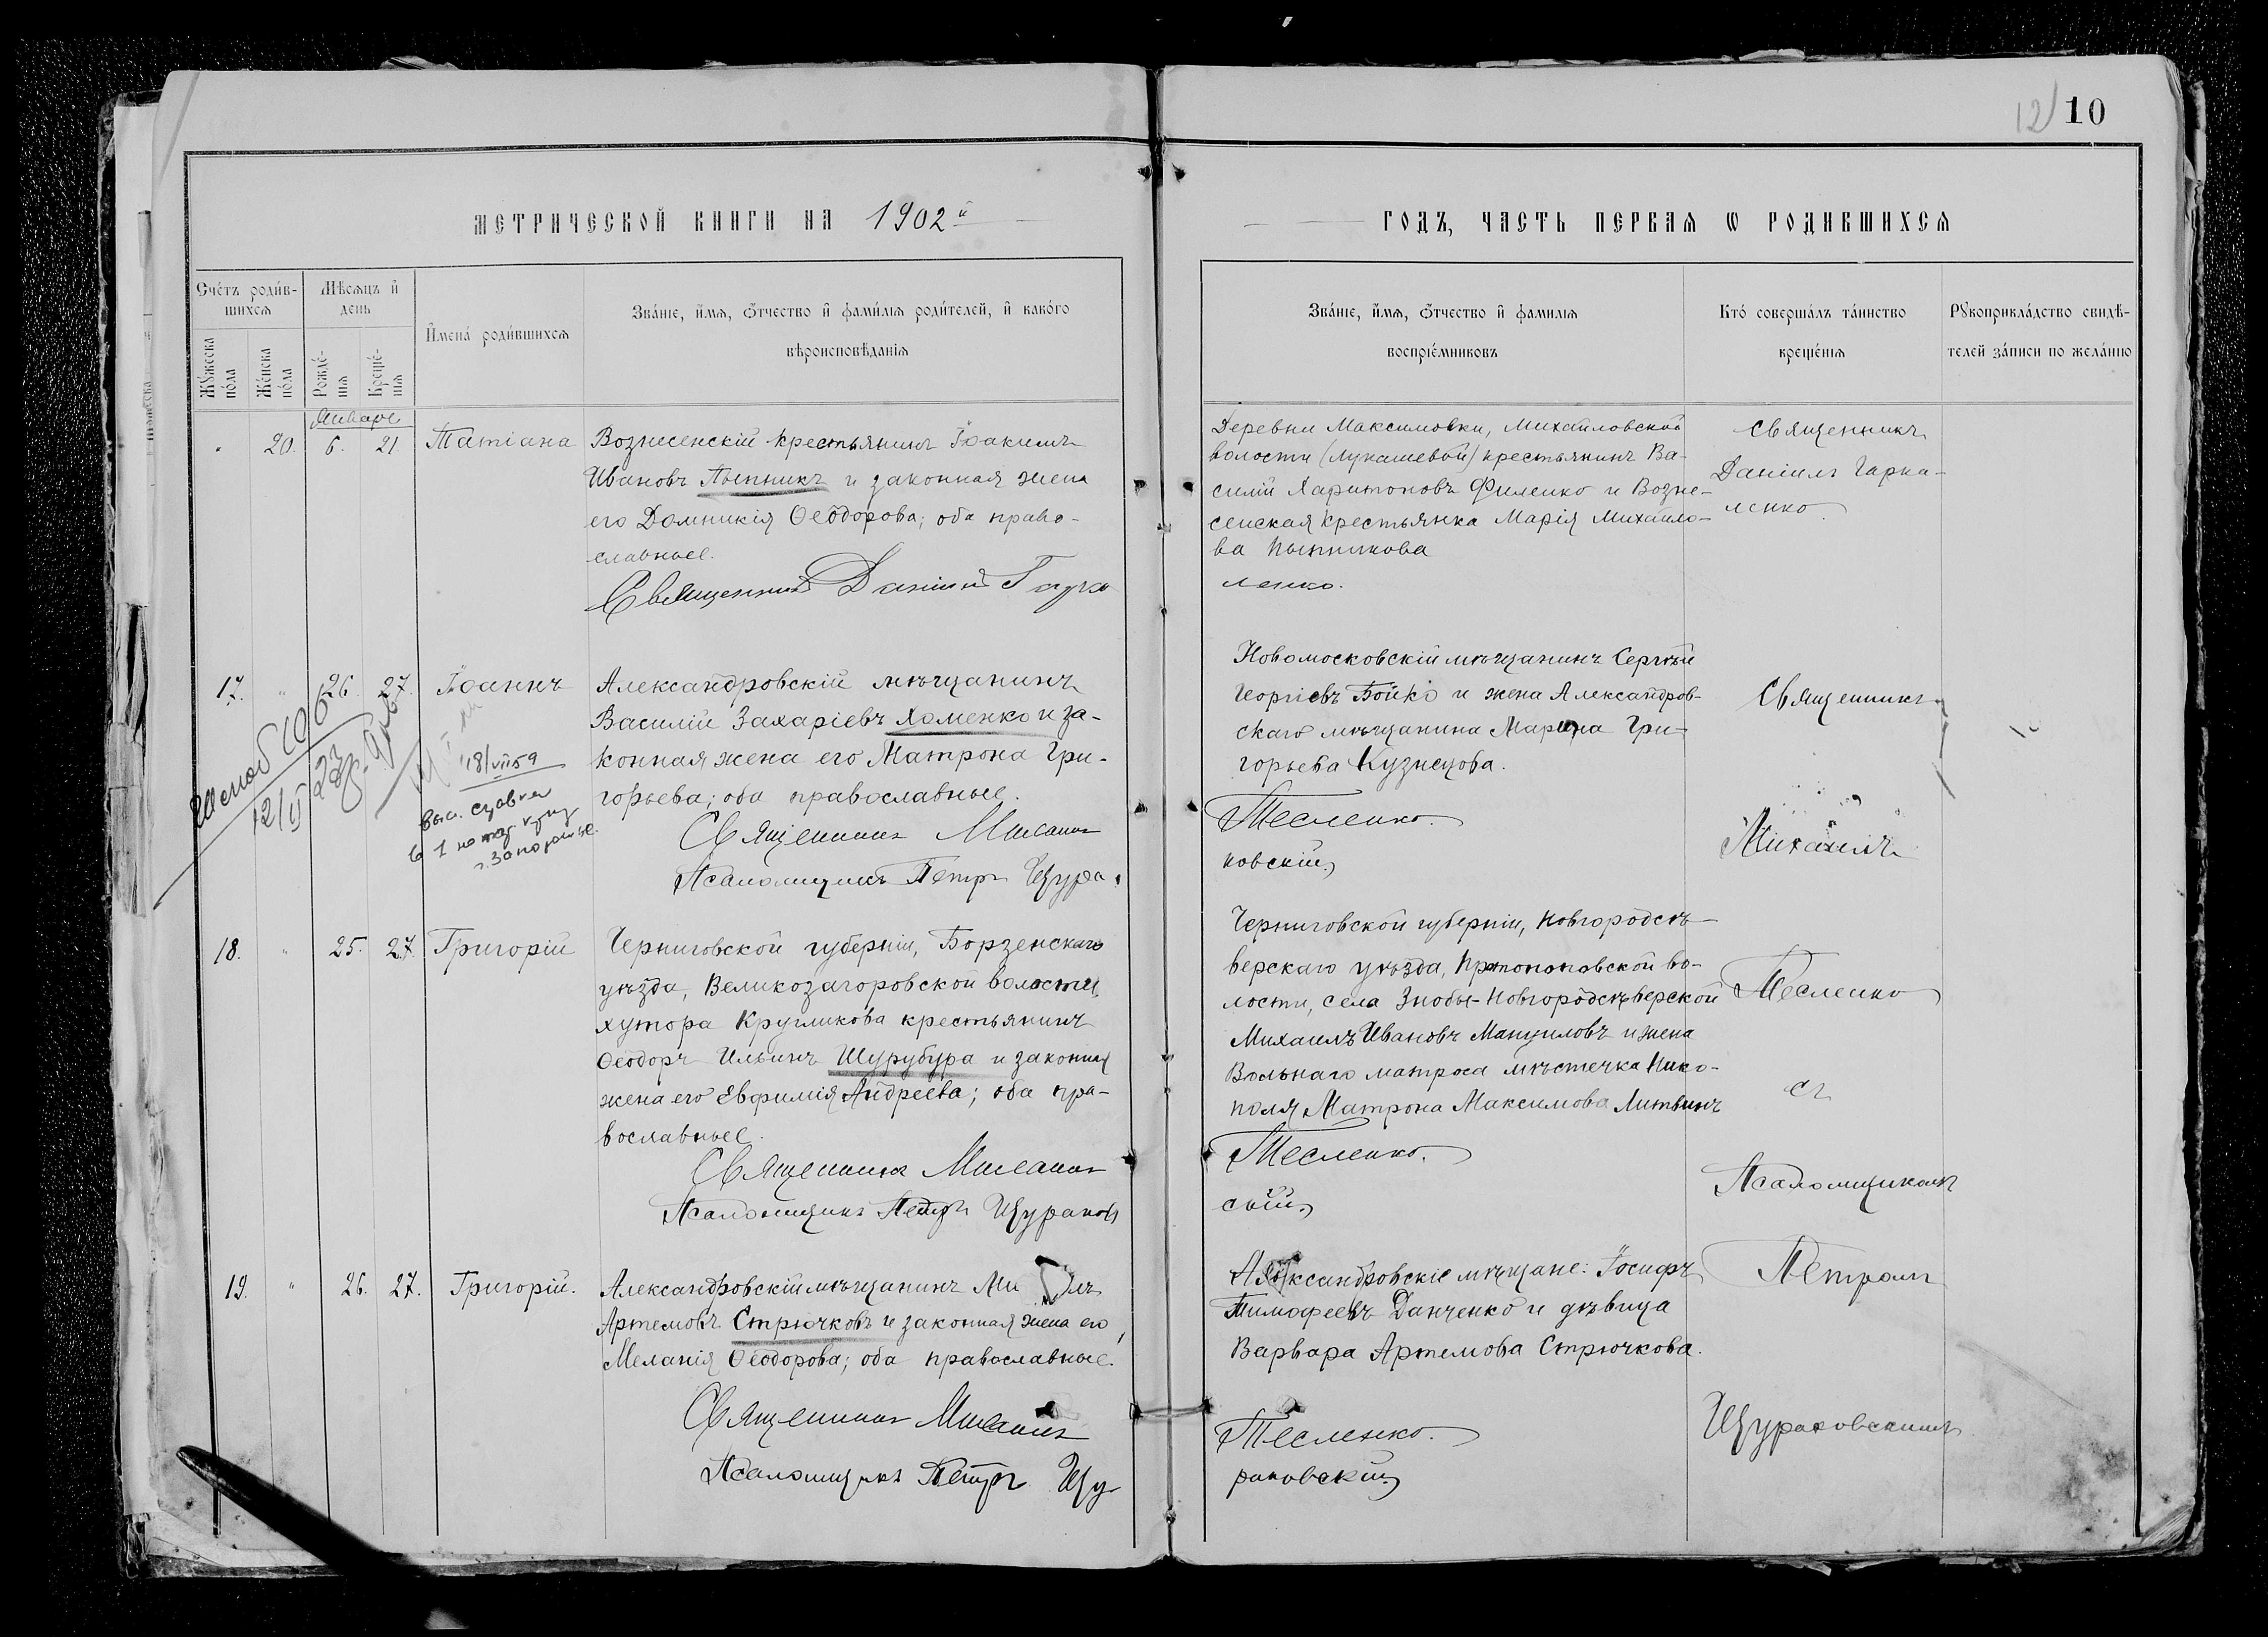 12) 10
МЕТРИЧЕСКОЙ КНИГИ НА 1902й
ГОДЪ, ЧАСТЬ ПЕРВАЯ Ѡ РОДИВШИХСЯ
Сче́тъ роди́в-
шихся
Мѣ́сяцъ и҆
день
И҆мена̀ роди́вшихся
Зва́нїе, и҆́мя, ѻ҆́тчество и҆ фами́лїя роди́телей, и҆ како́го
вѣроисповѣ́данїя
Мꙋ́жеска
по́ла
Же́нска
по́ла
Рожде́-
нїя
Креще́-
нїя
Зва́нїе, и҆́мя, ѻ҆́тчество и҆ фами́лїя
воспрїе́мниковъ
Кто̀ соверша́лъ та́инство
креще́нїя
Рꙋкоприкла́дство свидѣ́-
телей за́писи по жела́нїю
Январь
" 20. 6. 21. Татіана
Вознесенскій крестьянинъ Іоакимъ
Ивановъ Пыпникъ и законная жена
его Домникія Ѳеодорова; оба право-
славные.
Священникъ Даніилъ Гарка
Деревни Максимовки, Михайловской
волости (Лукашевой) крестьянинъ Ва-
силій Харитоновъ Филенко и Возне-
сенская крестьянка Марія Михайло-
ва Пыпникова
ленко.
Священникъ
Даніилъ Гарка-
ленко.
17. " 26. 27. Іоаннъ
Александровскій мѣщанинъ
Василій Захаріевъ Хоменко и за-
конная жена его Матрона Гри-
горьева; оба православные.
Священникъ Михаилъ
Псаломщикъ Петръ Щура
18/VII 59
выс. справка
в 1 нотар. к
г. Запорожье.
12/II
Новомосковскій мѣщанинъ Сергѣй
Георгіевъ Бойко и жена Александров-
скаго мѣщанина Марина Гри-
горьева Кузнецова.
Тесленко.
ковскій
Священникъ
Михаилъ
18. " 25. 27. Григорій
Черниговской губерніи, Борзенскаго
уѣзда, Великозагоровской волости,
хутора Кругликова крестьянинъ
Ѳеодоръ Ильинъ Шурубура и законная
жена его Евфимія Андреева; оба пра-
вославные.
Священникъ Михаилъ
Псаломщикъ Петръ Щураков
Черниговской губерніи, Новгородсѣ-
верскаго уѣзда, Протопоповской во-
лости, села Знобы-Новгородсѣверской
Михаилъ Ивановъ Мануиловъ и жена
Вольнаго матроса мѣстечка Нико-
поля Матрона Максимова Литвинъ
Тесленко.
скій
Тесленко
съ
Псаломщикомъ
19. " 26. 27. Григорій.
Александровскій мѣщанинъ Ми лъ
Артемовъ Стрючковъ и законная жена его,
Меланія Ѳеодорова; оба православные.
Священникъ Михаилъ
Псаломщикъ Петръ Щу
Александровскіе мѣщане: Іосифъ
Тимофеевъ Данченко и дѣвица
Варвара Артемова Стрючкова.
Тесленко.
раковскій
Петромъ
Щураковскимъ